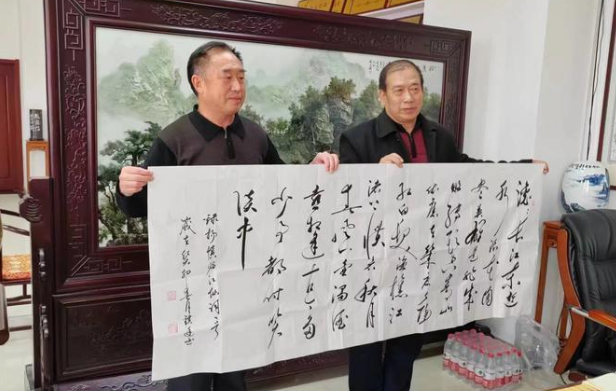 滚滚長江東逝
水浪花淘
尽英雄是非成
败转头空青山
依旧在几度夕陽
红白发渔樵江
渚上惯看秋月
春风一壶濁酒
喜相逢古今多
少事都付笑
谈中
杨慎临江仙词